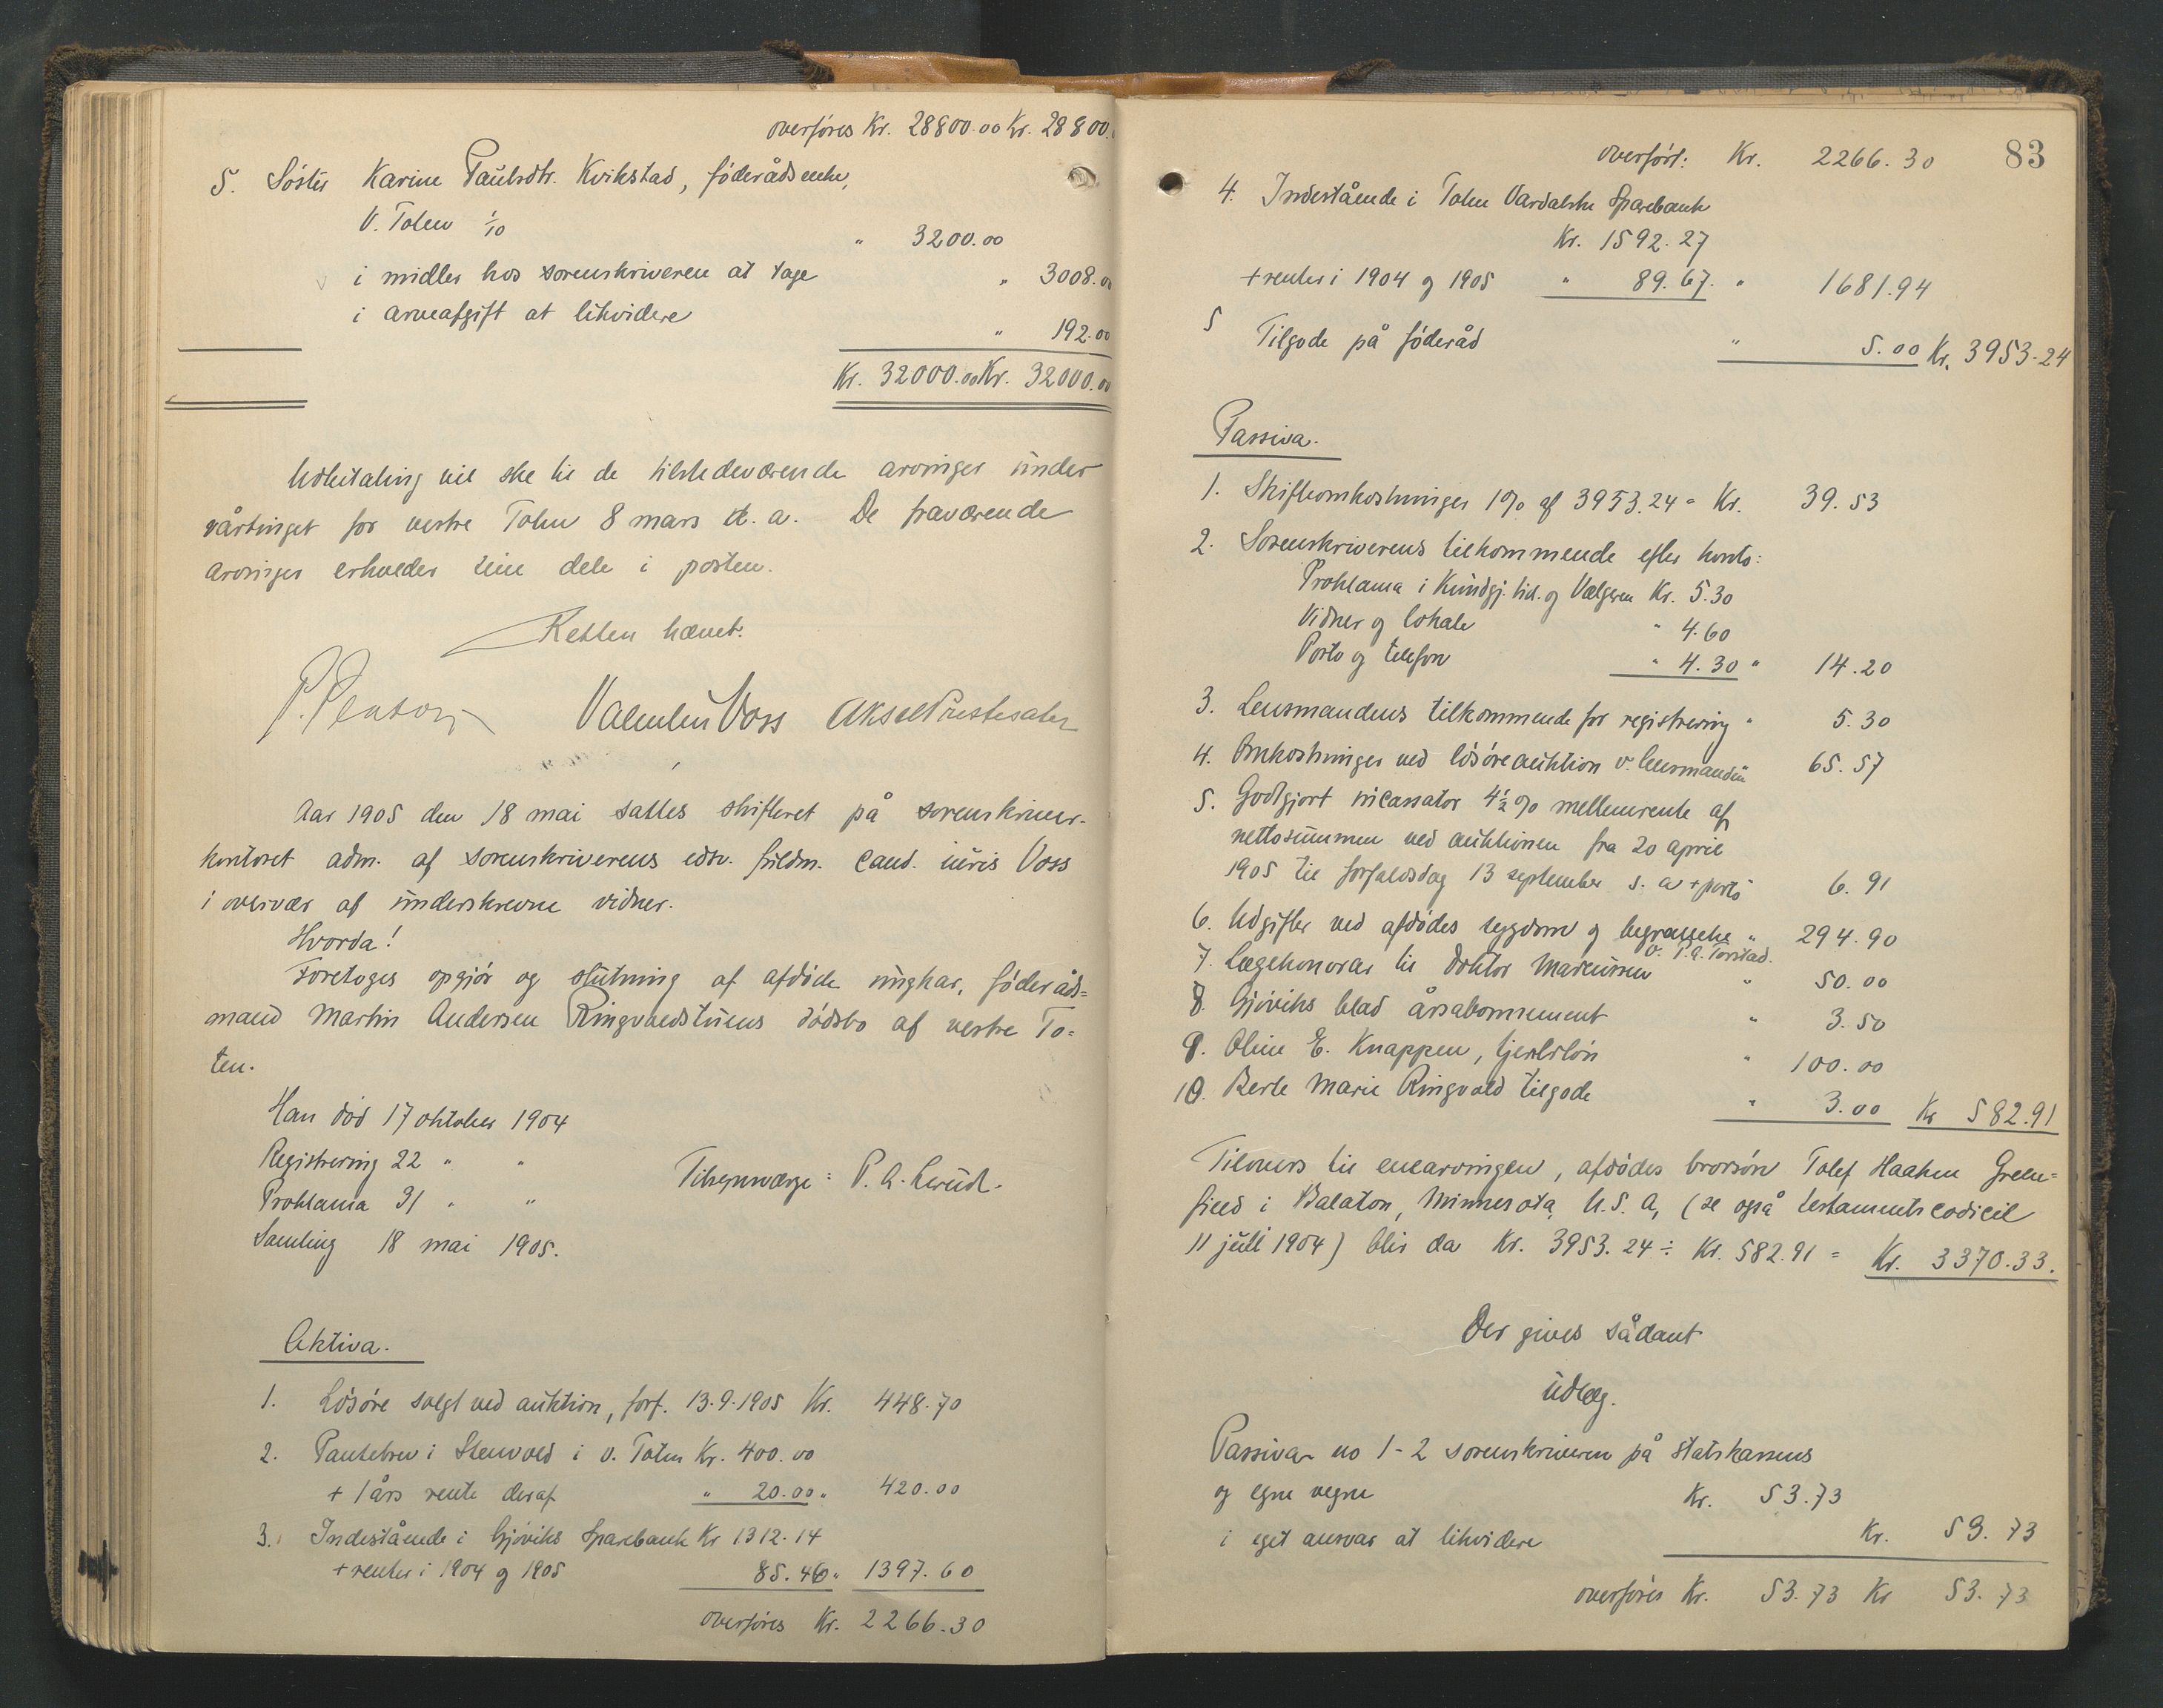 overføres Kr. 28800.00 Kr. 28800.
5. Søster Karine Paulsdtr. Kvikstad, føderådsenke,
V. Toten 1/10 " 3200.00
i midler hos sorenskriveren at tage " 3008.00
i arveafgift at likvidere " 192.00
Kr. 32000.00 Kr. 32000.00
Udbetaling vil ske til de tilstedeværende arvinger under
vårtinget for vestre Toten 8 mars d. a. De fraværende
arvinger erholder sine dele i posten.
Retten hævet.
Valentin Voss Aksel Prestesater
Aar 1905 den 18 mai sattes skifteret på sorenskriver-
kontoret adm. af sorenskriverens edsv. fuldm. cand. juris Voss
i overvær af underskrevne vidner.
Hvorda!
Foretoges opgjør og slutning af afdøde ungkar, føderåds=
mand Martin Andersen Ringvoldstuens dødsbo af vestre To=
ten.
Han død 17 oktober 1904
Registrering 22 " "
Proklama 31 " "
Tilsynsværge: P. A. Lerud.
Samling 18 mai 1905.
Aktiva.
1. Løsøre solgt ved auktion, forf. 13.9.1905 Kr. 448.70
2. Pantebrev i Stenvold i v. Toten Kr. 400.00
+ 1 års rente deraf " 20.00 " 420.00
3. Indestående i Gjøviks Sparebank Kr 1312.14
+ renter i 1904 og 1905 85.46 " 1397.60
overføres Kr. 2266.30
83
overført: Kr. 2266.30
4. Indestående i Toten Vardalske Sparebank
Kr. 1592.27
+ renter i 1904 og 1905 " 89.67. " 1681.94
5 Tilgode på føderåd " 5.00 Kr. 3953.24
Passiva.
1. Skifteomkostninger 1% af 3953.24 = Kr. 39.53
2. Sorenskriverens tilkommende efter konto:
Proklama i Kundgj. tid. og Vælgeren Kr. 5.30
Vidner og lokale " 4.60
Porto og telefon " 4.30 " 14.20
3. Lensmandens tilkommende for registrering " 5.30
4. Omkostninger ved løsøreauktion v. lensmanden 65.57
5. Godtgjort incassator 4½% mellemrente af
nettosummen ved auktionen fra 20 april
1905 til forfaldsdag 13 september s. a + porto 6.91
6. Udgifter ved afdødes sygdom og begravelse " 294.90
v. P. A. Torstad.
7. Lægehonorar til doktor Marcussen " 50.00
8. Gjøviks blad årsabonnement " 3.50
9. Oline E. Knappen, tjenstløn " 100.00
10. Berte Marie Ringvold tilgode " 3.00 Kr 582.91
Tilovers til enearvingen, afdødes brorsøn Tolef Haaken Green=
field i Balaton, Minnesota, U.S.A, (se også testamentscodicil
11 juli 1904) blir da Kr. 3953.24 ÷ Kr. 582.91 = Kr. 3370.33.
Der gives sådant
udlæg.
Passiva no 1-2 sorenskriveren på statskassens
og egne vegne Kr. 53.73
i eget ansvar at likvidere Kr. 53.73
overføres Kr. 53.73 Kr 53.73